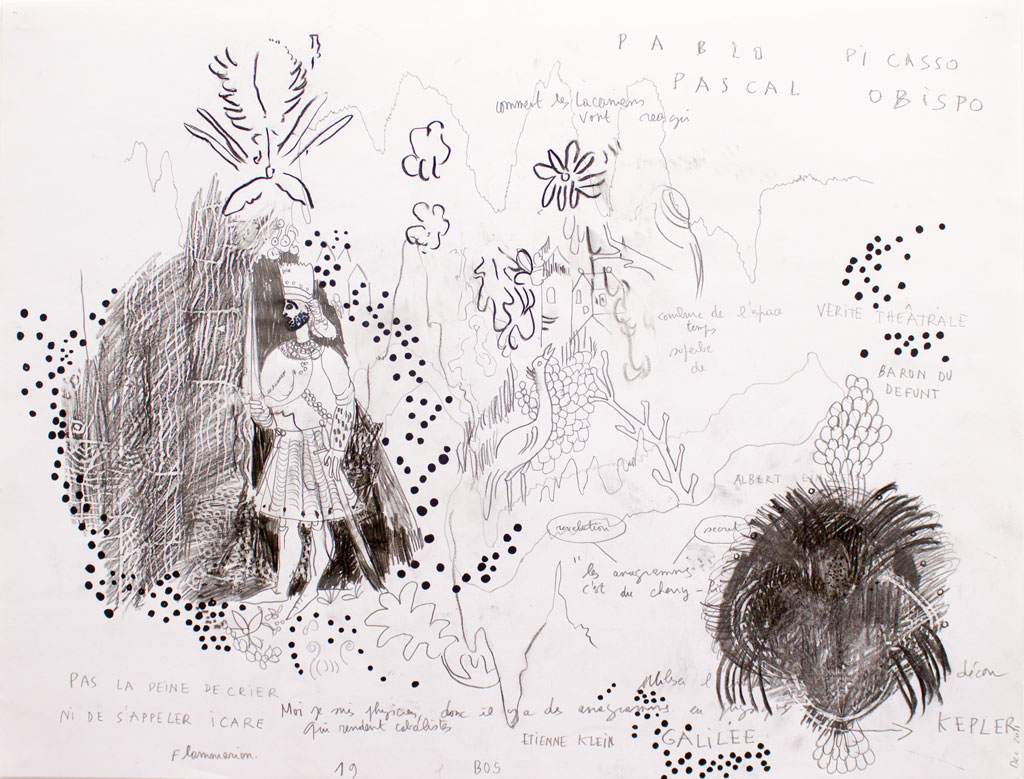 PABLO PICASSO
PASCAL OBISPO
comment les Lacaniens
vont
VERITE THÉÂTRALE
BARON DU
DEFUNT
de l'espace
temps
de
ALBERT
revelation
secret
"les anagrammes
c'est du cherry-
PAS LA PEINE DE CRIER
NI DE S'APPELER ICARE
Moi je suis physicien donc il y a des anagrammes en
qui rendent cabalistes
ETIENNE KLEIN
GALILÉE
KEPLER
Flammarion.
19
BOS